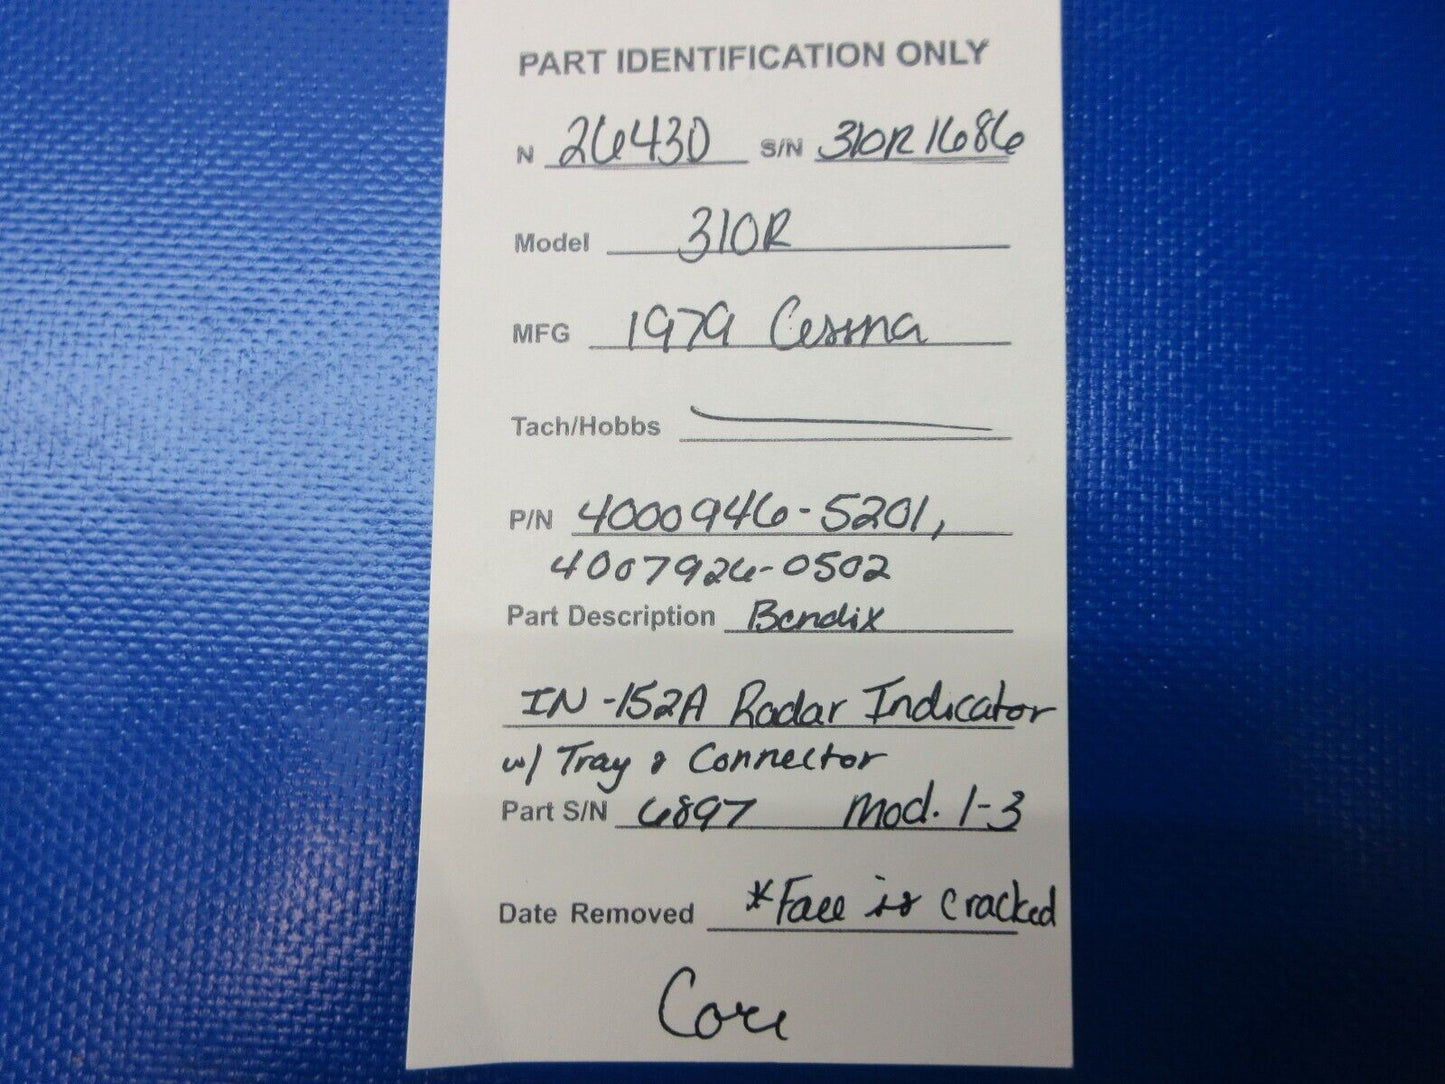 PART IDENTIFICATION ONLY
N 26430 S/N 310R1686
Model 310R
MFG 1979 Cessna
Tach/Hobbs
P/N 4000946-5201,
4007926-0502
Part Description Bendix
IN-152A Radar Indicator
w/ Tray & Connector
Part S/N 6897 Mod. 1-3
Date Removed *Face is cracked
Core